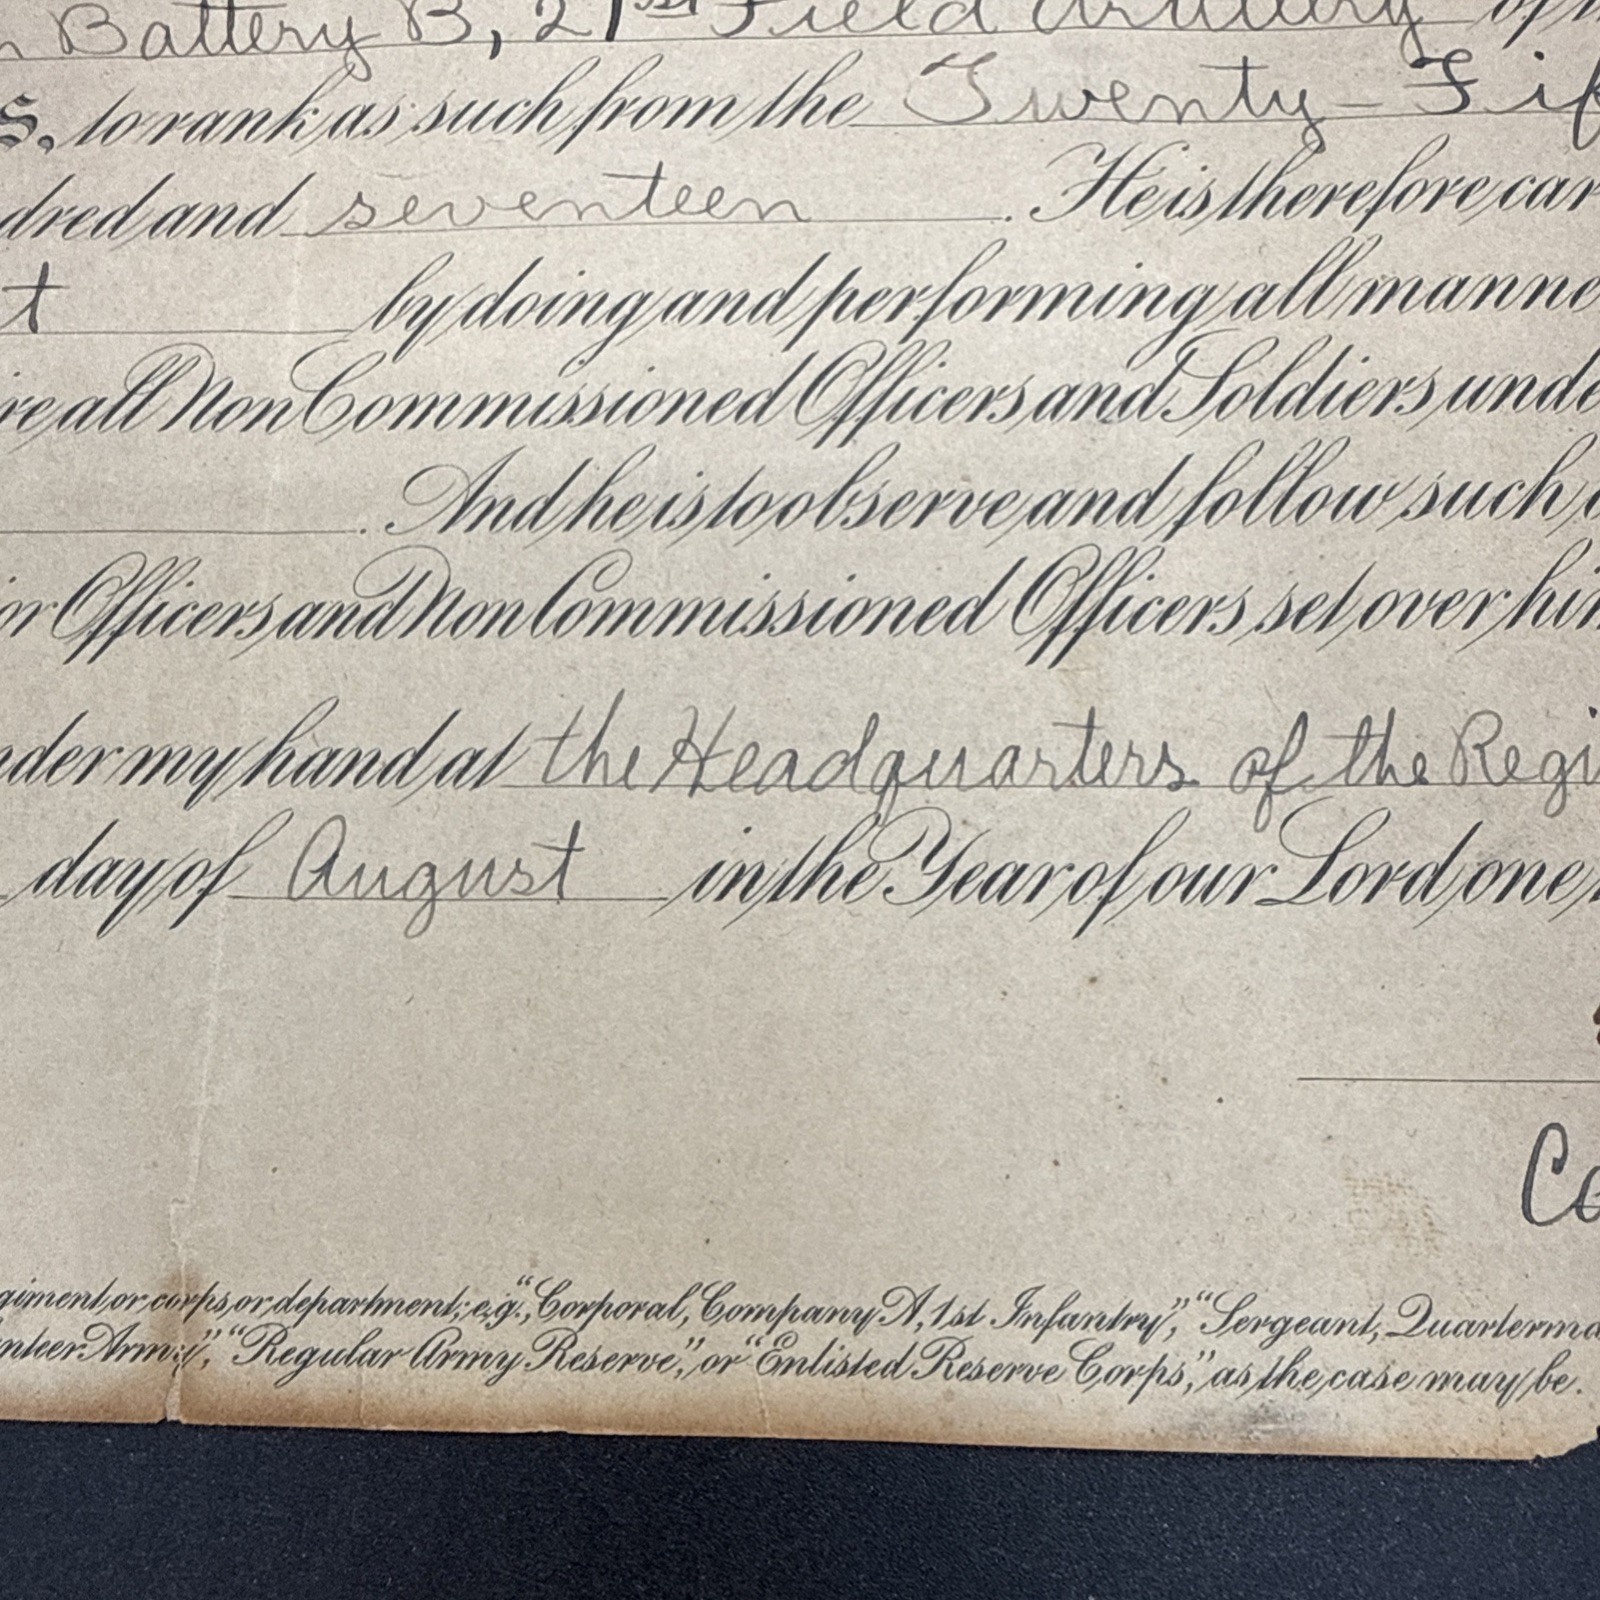 Battery B, 21st Field Artillery of
S. to rank as such from the Twenty-Fif
dred and seventeen. He is therefore car
t by doing and performing all manne
re all Non Commissioned Officers and Soldiers unde
. And he is to observe and follow such
or Officers and Non Commissioned Officers set over him
nder my hand at the Headquarters of the Regi
day of August in the Year of our Lord one
Co
giment or corps or department; e.g., "Corporal, Company A, 1st Infantry," "Sergeant, Quarterma
nteer Army," "Regular Army Reserve," or "Enlisted Reserve Corps," as the case may be.